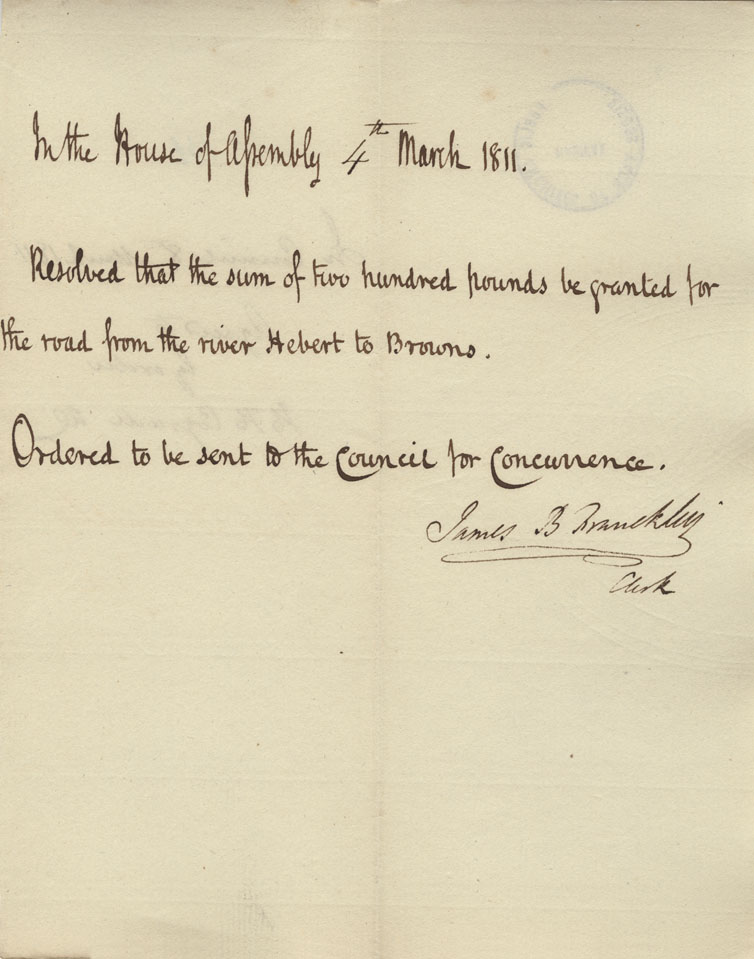 In the House of Assembly 4th March 1811.
Resolved that the sum of two hundred pounds be granted for
the road from the river Hebert to Browns.
Ordered to be sent to the Council for Concurrence.
James B Francklin
Clerk